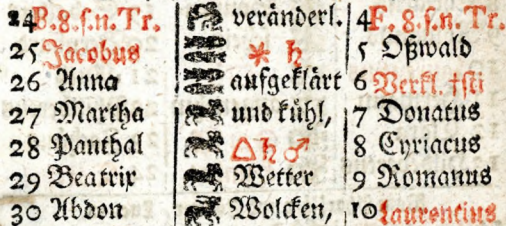 24 B. 8. s. n. Tr. veränderl. 4 F. 8. s. n. Tr.
25 Jacobus ⚹ ♄ 5 Oßwald
26 Anna aufgeklärt 6 Verkl. †sti
27 Martha und kühl, 7 Donatus
28 Panthal △ ♄ ♂ 8 Cyriacus
29 Beatrix Wetter 9 Romanus
30 Abdon Wolcken, 10 Laurentius